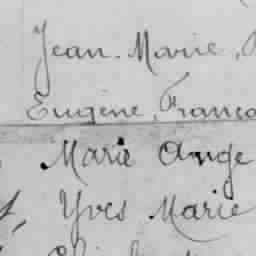 Jean-Marie,
Eugène, França
Marie Ange
Yves Marie